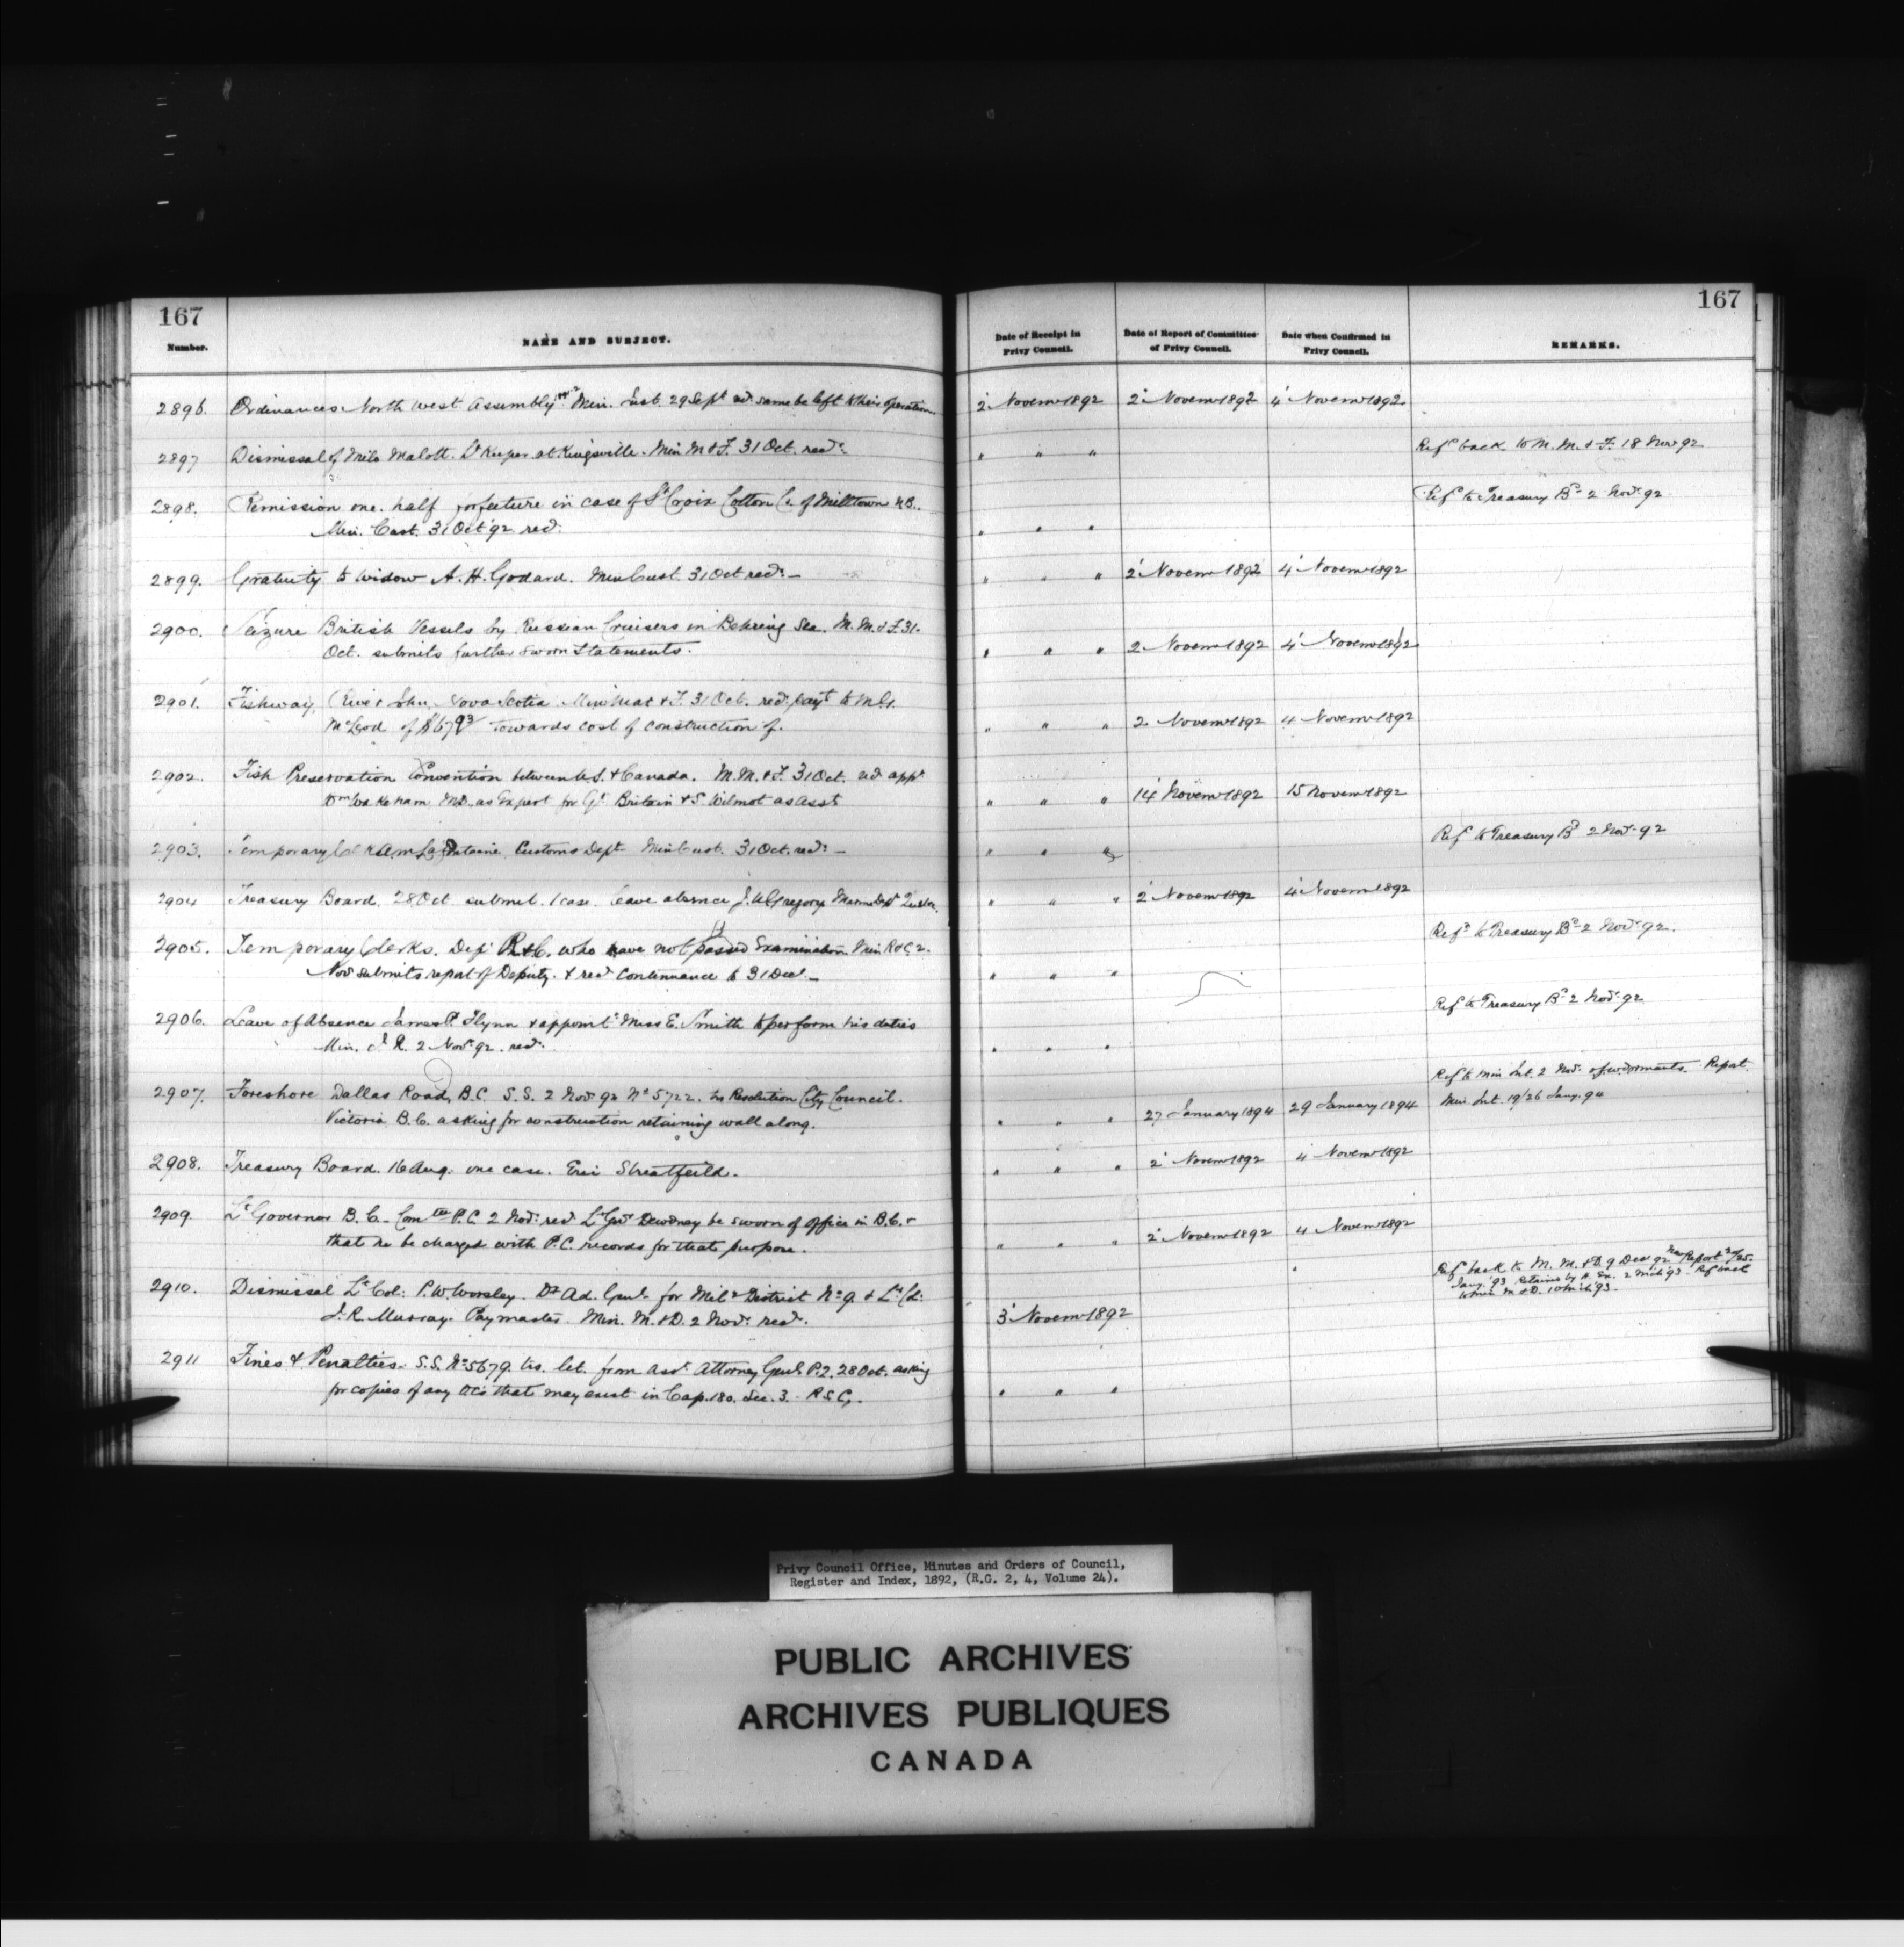 167
167
Number.
NAME AND SUBJECT.
Date of Receipt in Privy Council.
Date of Report of Committee of Privy Council.
Date when Confirmed in Privy Council.
REMARKS.
2896. Ordinances North West Assembly Min. Int. 29 Sept same be left to their operation. 2 Novemr 1892 2 Novemr 1892 4 Novemr 1892
2897 Dismissal of Milo Malott. Lt Keeper at Kingsville. Min M & F. 31 Oct. recd. " " " Refd back to M. M. & F. 18 Nov 92
2898. Remission one half forfeiture in case of St Croix Cotton Co. of Milltown N.B. Refd to Treasury Bd 2 Novr 92
Min. Cust. 31 Oct 92 red. " " "
2899. Gratuity to widow A. H. Godard. Min Cust. 31 Oct recd. — " " " 2 Novemr 1892 4 Novemr 1892
2900. Seizure British Vessels by Russian Cruisers in Behring Sea. M. M. & F. 31.
Oct. submits further sworn statements. " " " 2 Novemr 1892 4 Novemr 1892
2901. Fishway, River John, Nova Scotia. Min Mar & F. 31 Oct. recd. payt to
McLeod of $67 93 towards cost of construction of. " " " 2 Novemr 1892 4 Novemr 1892
2902. Fish Preservation Convention between U.S. & Canada. M. M. & F. 31 Oct. appt
Wm Wakeham M.D. as Expert for Gt Britain & S. Wilmot as Asst " " " 14 Novemr 1892 15 Novemr 1892
2903. Temporary Clerk Customs Dept. Min Cust. 31 Oct. recd. — " " " Refd to Treasury Bd 2 Novr 92
2904 Treasury Board. 28 Oct submit. 1 case. Leave absence J. U. Gregory Marine Dept Quebec. " " " 2 Novemr 1892 4 Novemr 1892
2905. Temporary Clerks. Dept R & C. who have not passed Examination. Min R & C 2. Refd to Treasury Bd 2 Novr 92.
Nov submits report of Deputy. & recd continuance to 31 Decr. — " " "
2906. Leave of Absence James P. Flynn & appointt Miss E. Smith to perform his duties Refd to Treasury Bd 2 Novr 92
Min. I R. 2 Novr 92. recd. " " "
2907. Foreshore Dallas Road, B.C. S.S. 2 Novr 92 No 5722. Resolution City Council. Refd to Min Int. 2 Novr. Report.
Victoria B.C. asking for construction retaining wall along. " " " 27 January 1894 29 January 1894 Min Int. 19/26 Jany. 94
2908. Treasury Board. 16 Aug. one case. Eric Streatfeild. " " " 2 Novemr 1892 4 Novemr 1892
2909. Lt Governor B.C. — Comtee P.C. 2 Novr. recd Lt Govr Dewdney be sworn of office in B.C. &
that he be charged with P.C. records for that purpose. " " " 2 Novemr 1892 4 Novemr 1892
2910. Dismissal Lt Col: P. W. Worsley. Dy Ad. Genl for Milt District No 9 & Lt Col: Refd back to M. M. & D. 9 Decr 92 New Report
J. R. Murray. Paymaster. Min. M. & D. 2 Novr. recd. 3 Novemr 1892 Jany. '93 2 Mch '93 Refd back to Min M & D. 10 Mch '93.
2911 Fines & Penalties. S.S. No 5679. let. from Asst Attorney Genl 28 Oct. asking
for copies of any that may exist in Cap. 180. Sec. 3. R.S.C. " " "
Privy Council Office, Minutes and Orders of Council,
Register and Index, 1892, (R.G. 2, 4, Volume 24).
PUBLIC ARCHIVES
ARCHIVES PUBLIQUES
CANADA